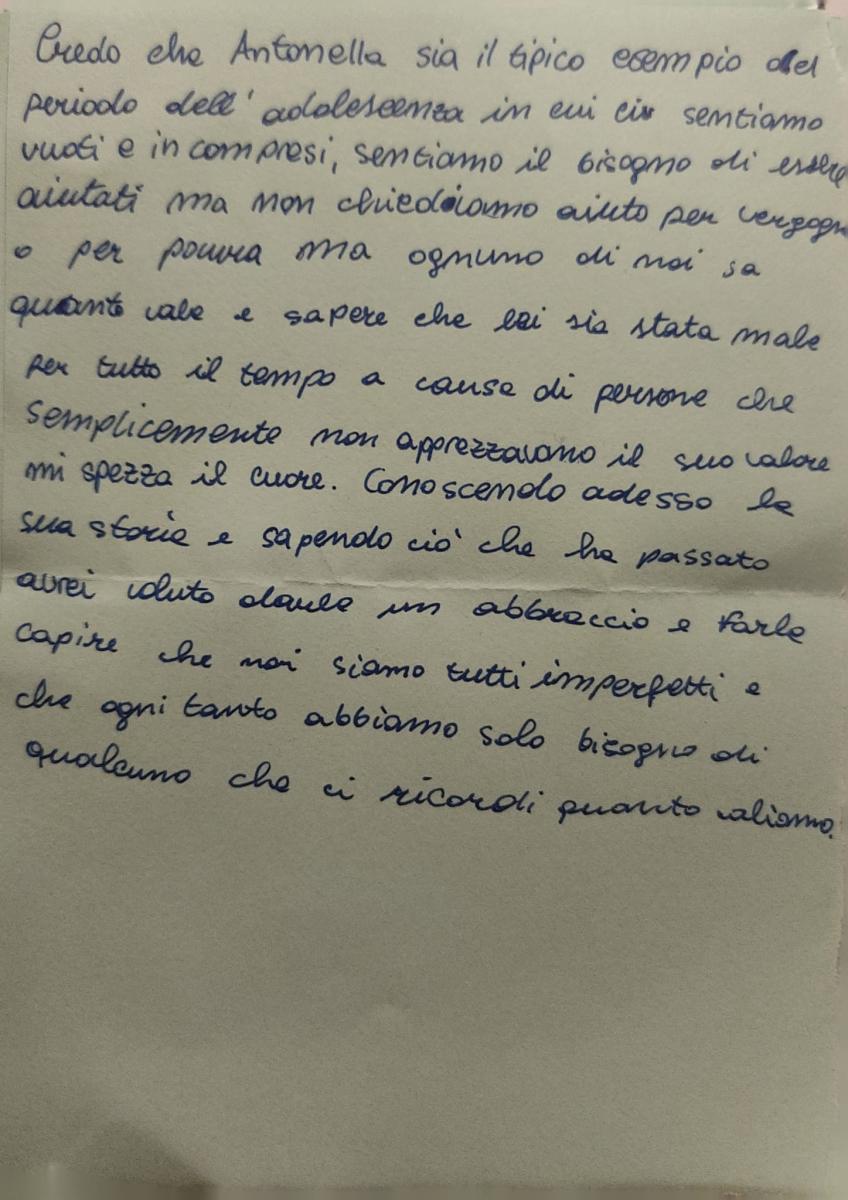 Credo che Antonella sia il tipico esempio del
periodo dell'adolescenza in cui ci sentiamo
vuoti e incompresi, sentiamo il bisogno di essere
aiutati ma non chiediamo aiuto per vergogn
o per paura ma ognuno di noi sa
quanto vale e sapere che lei sia stata male
per tutto il tempo a causa di persone che
semplicemente non apprezzavano il suo valore
mi spezza il cuore. Conoscendo adesso la
sua storia e sapendo ciò che ha passato
avrei voluto darle un abbraccio e farle
capire che noi siamo tutti imperfetti e
che ogni tanto abbiamo solo bisogno di
qualcuno che ci ricordi quanto valiamo.